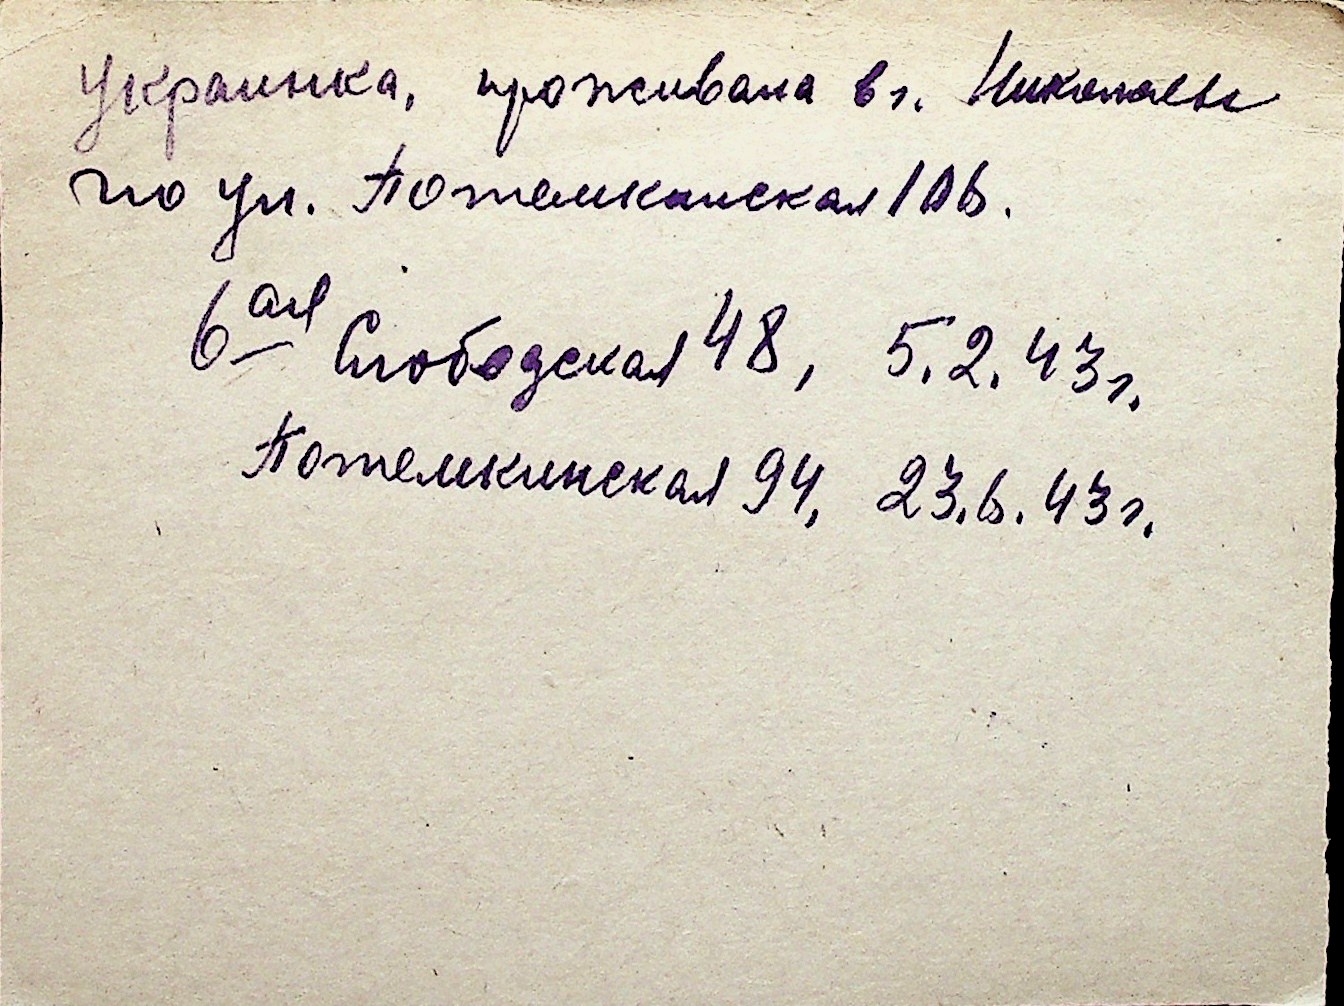 Украинка, проживала в г. Николаеве
по ул. Потемкинская 106.
6ая Слободская 48, 5.2.43 г.
Потемкинская 94, 23.6.43 г.